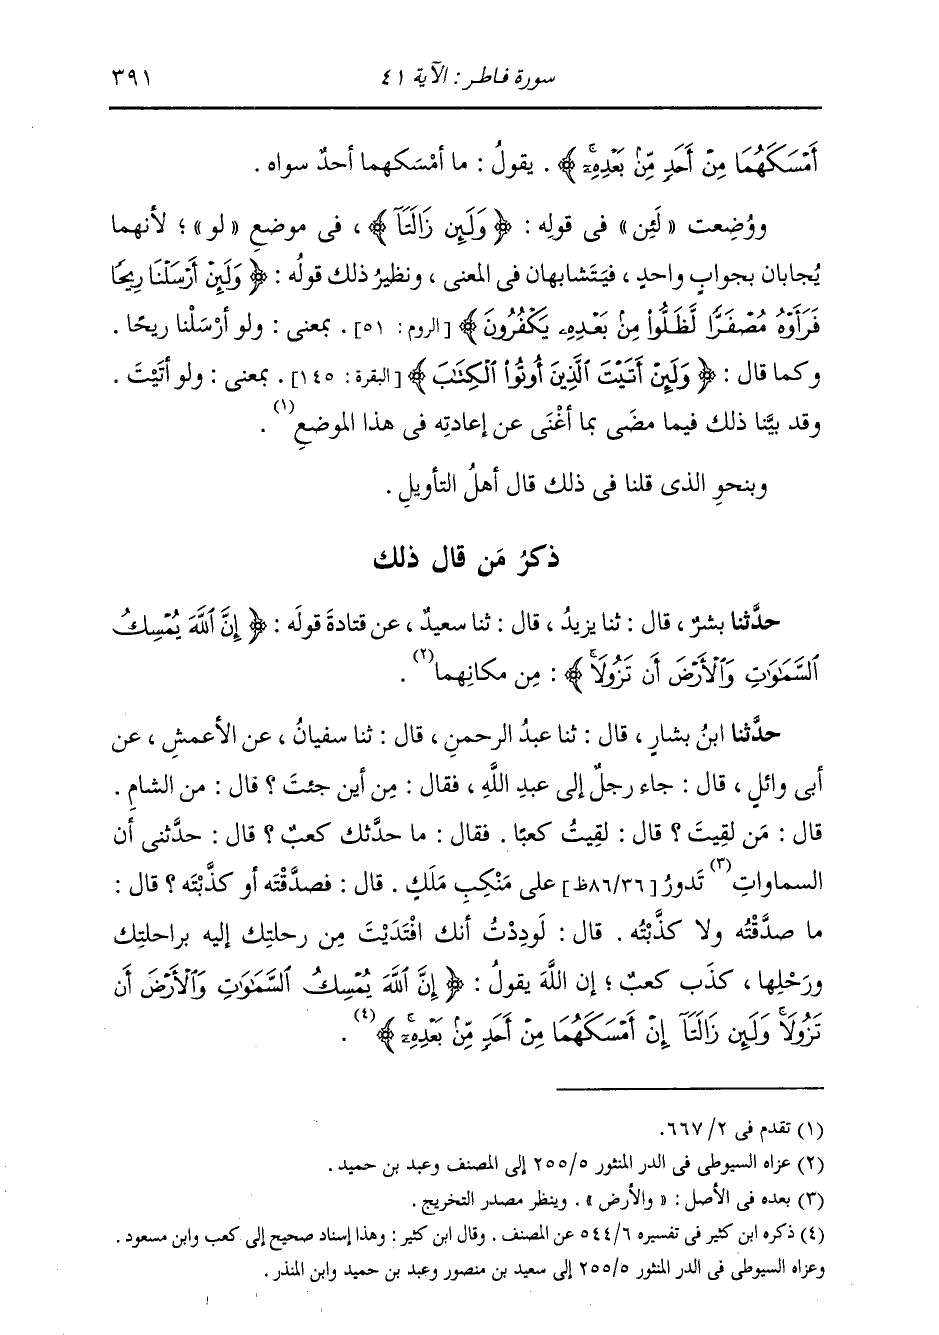 سورة فاطر : الآية ٤١
٣٩١
أَمْسَكَهُمَا مِنْ أَحَدٍ مِّنۢ بَعْدِهِۦٓ ﴾ . يقولُ : ما أمْسَكهما أحدٌ سواه .
ووُضِعت « لَئِن » فى قولِه : ﴿ وَلَئِن زَالَتَآ ﴾ ، فى موضعِ « لو » ؛ لأنهما
يُجابان بجوابٍ واحدٍ ، فيَتَشابهان فى المعنى ، ونظيرُ ذلك قولُه : ﴿ وَلَئِنْ أَرْسَلْنَا رِيحًا
فَرَأَوْهُ مُصْفَرًّا لَّظَلُّواْ مِنۢ بَعْدِهِۦ يَكْفُرُونَ ﴾ [الروم: ٥١] . بمعنى : ولو أرْسَلْنا ريحًا .
وكما قال : ﴿ وَلَئِنْ أَتَيْتَ ٱلَّذِينَ أُوتُواْ ٱلْكِتَٰبَ ﴾ [البقرة: ١٤٥] . بمعنى : ولو أَتَيْتَ .
وقد بيَّنا ذلك فيما مضَى بما أغْنَى عن إعادتِه فى هذا الموضعِ (١) .
وبنحوِ الذى قلنا فى ذلك قال أهلُ التأويلِ .
ذكرُ مَن قال ذلك
حدَّثنا بشرٌ ، قال : ثنا يزيدُ ، قال : ثنا سعيدٌ ، عن قتادةَ قولَه : ﴿ إِنَّ ٱللَّهَ يُمْسِكُ
ٱلسَّمَٰوَٰتِ وَٱلْأَرْضَ أَن تَزُولَاۚ ﴾ : مِن مكانِهما (٢) .
حدَّثنا ابنُ بشارٍ ، قال : ثنا عبدُ الرحمنِ ، قال : ثنا سفيانُ ، عن الأعمشِ ، عن
أبى وائلٍ ، قال : جاء رجلٌ إلى عبدِ اللَّهِ ، فقال : مِن أين جئتَ ؟ قال : من الشامِ .
قال : مَن لقِيتَ ؟ قال : لقِيتُ كعبًا . فقال : ما حدَّثك كعبٌ ؟ قال : حدَّثنى أن
السماواتِ (٣) تَدورُ [٨٦/٣٦ظ] على مَنْكِبِ مَلَكٍ . قال : فصدَّقْتَه أو كذَّبْتَه ؟ قال :
ما صدَّقْتُه ولا كذَّبْتُه . قال : لَودِدْتُ أنك افْتَدَيْتَ مِن رحلتِك إليه براحلتِك
ورَحْلِها ، كذَب كعبٌ ؛ إن اللَّهَ يقولُ : ﴿ إِنَّ ٱللَّهَ يُمْسِكُ ٱلسَّمَٰوَٰتِ وَٱلْأَرْضَ أَن
تَزُولَاۚ وَلَئِن زَالَتَآ إِنْ أَمْسَكَهُمَا مِنْ أَحَدٍ مِّنۢ بَعْدِهِۦٓ ﴾ (٤) .
(١) تقدم فى ٢/ ٦٦٧.
(٢) عزاه السيوطى فى الدر المنثور ٢٥٥/٥ إلى المصنف وعبد بن حميد .
(٣) بعده فى الأصل : « والأرض » . وينظر مصدر التخريج .
(٤) ذكره ابن كثير فى تفسيره ٥٤٤/٦ عن المصنف . وقال ابن كثير : وهذا إسناد صحيح إلى كعب وابن مسعود .
وعزاه السيوطى فى الدر المنثور ٢٥٥/٥ إلى سعيد بن منصور وعبد بن حميد وابن المنذر .